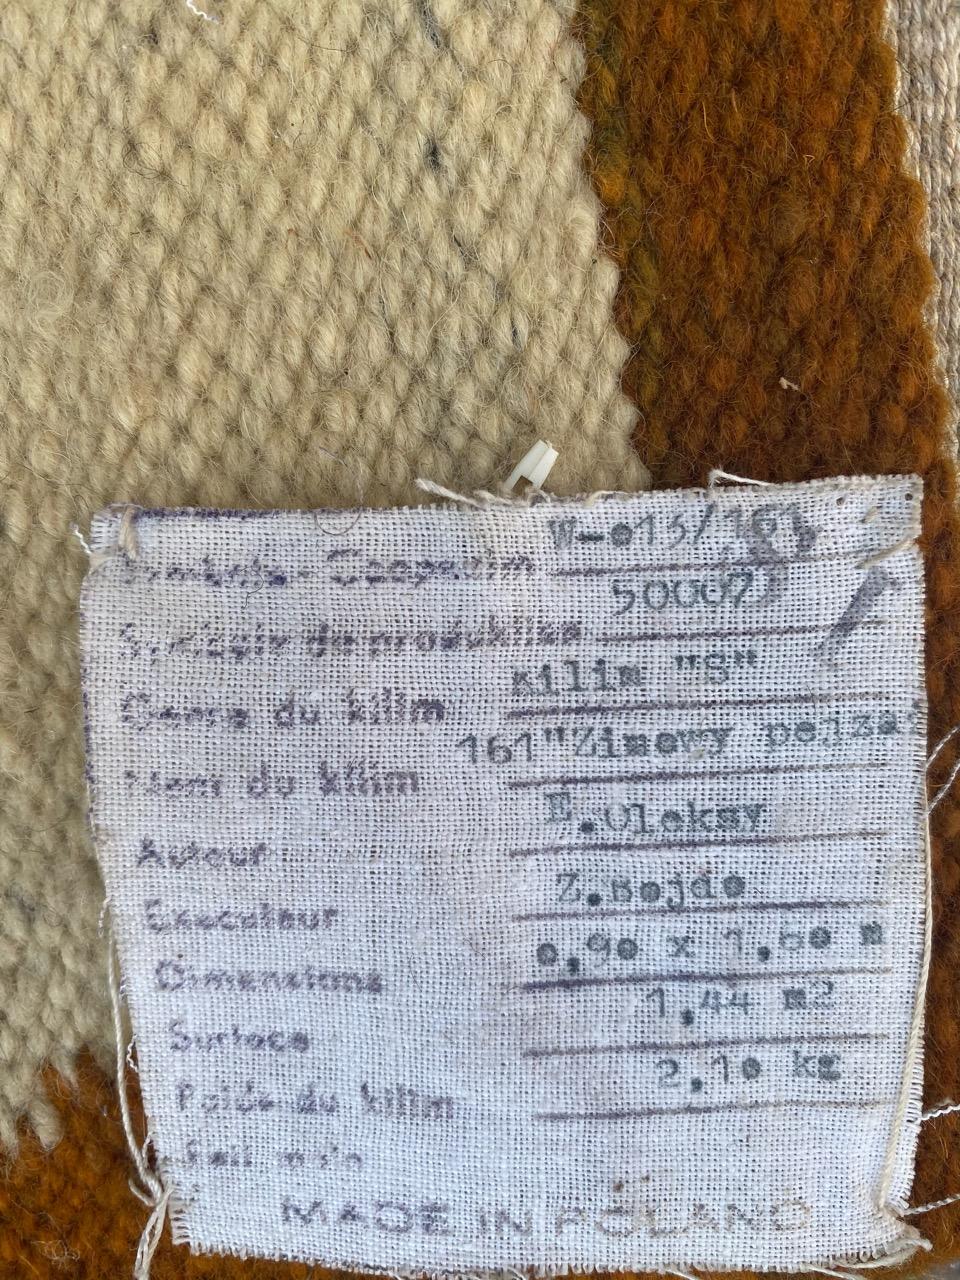 W-013/161
50007
du
Kilim "S"
du kilim
161 "Zimowy pejza
Nom du kilim
E.Oleksy
Auteur
Z.Bojdo
Executeur
0,90 x 1,60 m
Dimensions
1,44 m2
Surface
2,10 kg
Poids du kilim
MADE IN POLAND